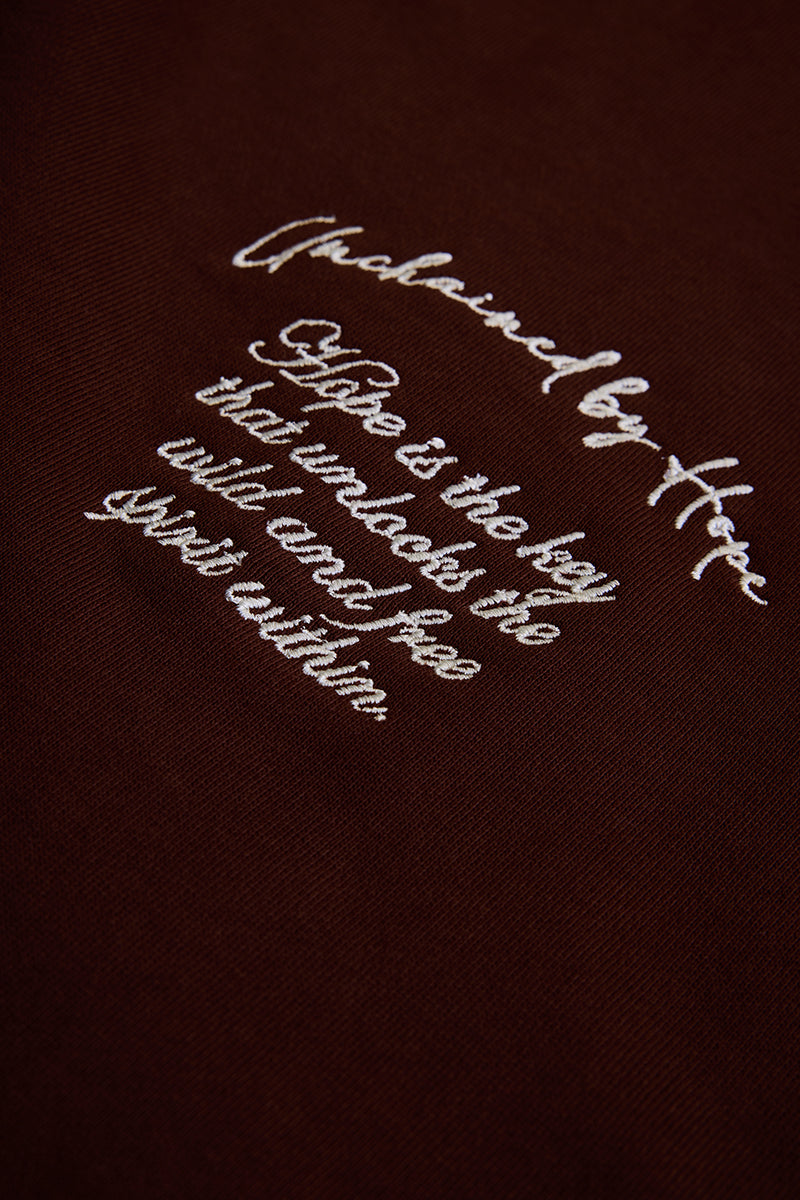 Unchained by Hope
Hope is the key
that unlocks the
wild and free
spirit within,